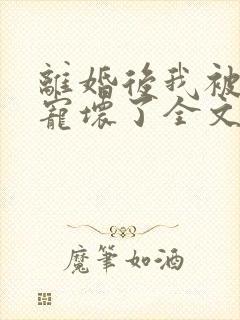 離婚後我被
寵壞了全文
魔筆如酒